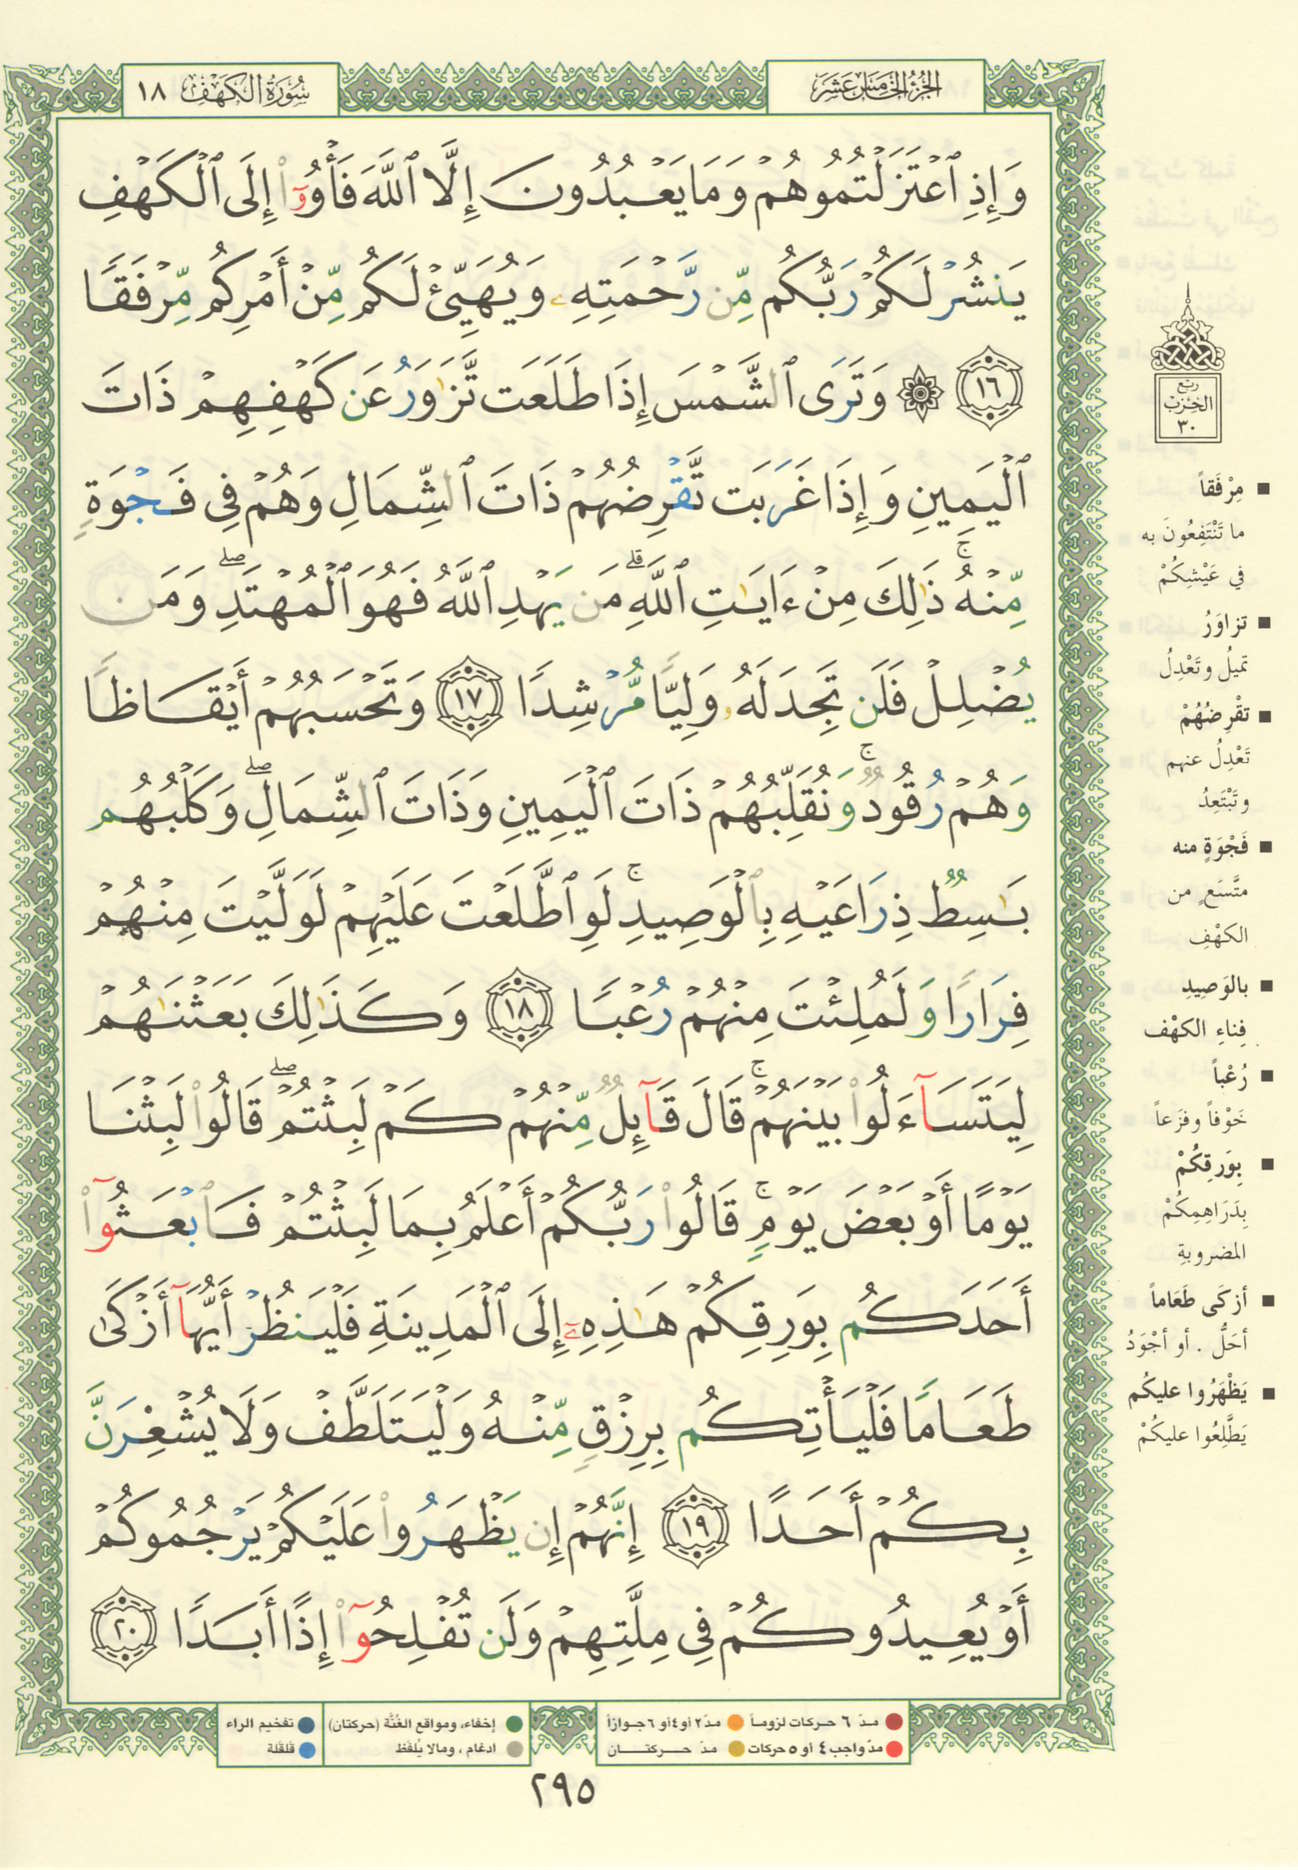 الجُزْءُ الخَامِسَ عَشَرَ
سُورَةُ الكَهْفِ ١٨
وَإِذِ ٱعْتَزَلْتُمُوهُمْ وَمَا يَعْبُدُونَ إِلَّا ٱللَّهَ فَأْوُۥٓا۟ إِلَى ٱلْكَهْفِ
يَنشُرْ لَكُمْ رَبُّكُم مِّن رَّحْمَتِهِۦ وَيُهَيِّئْ لَكُم مِّنْ أَمْرِكُم مِّرْفَقًا
١٦ ۞ وَتَرَى ٱلشَّمْسَ إِذَا طَلَعَت تَّزَٰوَرُ عَن كَهْفِهِمْ ذَاتَ
ٱلْيَمِينِ وَإِذَا غَرَبَت تَّقْرِضُهُمْ ذَاتَ ٱلشِّمَالِ وَهُمْ فِى فَجْوَةٍ
مِّنْهُ ۚ ذَٰلِكَ مِنْ ءَايَٰتِ ٱللَّهِ ۗ مَن يَهْدِ ٱللَّهُ فَهُوَ ٱلْمُهْتَدِ ۖ وَمَن
يُضْلِلْ فَلَن تَجِدَ لَهُۥ وَلِيًّا مُّرْشِدًا ١٧ وَتَحْسَبُهُمْ أَيْقَاظًا
وَهُمْ رُقُودٌ ۚ وَنُقَلِّبُهُمْ ذَاتَ ٱلْيَمِينِ وَذَاتَ ٱلشِّمَالِ ۖ وَكَلْبُهُم
بَٰسِطٌ ذِرَاعَيْهِ بِٱلْوَصِيدِ ۚ لَوِ ٱطَّلَعْتَ عَلَيْهِمْ لَوَلَّيْتَ مِنْهُمْ
فِرَارًا وَلَمُلِئْتَ مِنْهُمْ رُعْبًا ١٨ وَكَذَٰلِكَ بَعَثْنَٰهُمْ
لِيَتَسَآءَلُوا۟ بَيْنَهُمْ ۚ قَالَ قَآئِلٌ مِّنْهُمْ كَمْ لَبِثْتُمْ ۖ قَالُوا۟ لَبِثْنَا
يَوْمًا أَوْ بَعْضَ يَوْمٍ ۚ قَالُوا۟ رَبُّكُمْ أَعْلَمُ بِمَا لَبِثْتُمْ فَٱبْعَثُوٓا۟
أَحَدَكُم بِوَرِقِكُمْ هَٰذِهِۦٓ إِلَى ٱلْمَدِينَةِ فَلْيَنظُرْ أَيُّهَآ أَزْكَىٰ
طَعَامًا فَلْيَأْتِكُم بِرِزْقٍ مِّنْهُ وَلْيَتَلَطَّفْ وَلَا يُشْعِرَنَّ
بِكُمْ أَحَدًا ١٩ إِنَّهُمْ إِن يَظْهَرُوا۟ عَلَيْكُمْ يَرْجُمُوكُمْ
أَوْ يُعِيدُوكُمْ فِى مِلَّتِهِمْ وَلَن تُفْلِحُوٓا۟ إِذًا أَبَدًا ٢٠
ربع
الحِزْب
٣٠
■ مِرْفَقاً
ما تَنْتَفِعُونَ به
في عَيْشِكُمْ
■ تزاوَرُ
تميلُ وتَعْدِلُ
■ تقْرِضُهُمْ
تَعْدِلُ عنهم
وتَبْتَعِدُ
■ فَجْوَةٍ منه
متَّسَعٍ من
الكهْفِ
■ بالوَصِيدِ
فِناءِ الكهْف
■ رُعْباً
خَوْفاً وفزَعاً
■ بِوَرِقِكُمْ
بِدَرَاهِمِكُمْ
المضروبةِ
■ أزكَى طَعَاماً
أحَلُّ . أو أجْوَدُ
■ يَظْهَرُوا عليكُم
يَطَّلِعُوا عليكُمْ
مدّ ٦ حركات لزوماً مدّ ٢ أو ٤ أو ٦ جوازاً
مدّ واجب ٤ أو ٥ حركات مدّ حركتان
إخفاء، ومواقع الغُنَّة (حركتان) تفخيم الراء
ادغام ، ومالا يُلفَظ قلقلة
٢٩٥